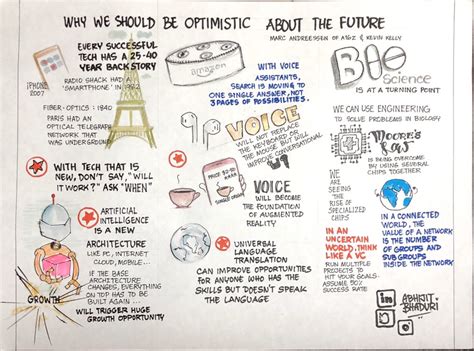 WHY WE SHOULD BE OPTIMISTIC ABOUT THE FUTURE
MARC ANDREESSEN OF A16Z & KEVIN KELLY
EVERY SUCCESSFUL
TECH HAS A 25-40
YEAR BACKSTORY
IPHONE
2007
RADIO SHACK HAD A
'SMARTPHONE' IN 1992
FIBER-OPTICS: 1840
PARIS HAD AN
OPTICAL TELEGRAPH
NETWORK THAT
WAS UNDERGROUND
amazon
WITH VOICE
ASSISTANTS,
SEARCH IS MOVING TO
ONE SINGLE ANSWER, NOT
3 PAGES OF POSSIBILITIES.
BIO
Science
IS AT A TURNING POINT
VOICE
WILL NOT REPLACE
THE KEYBOARD AND
THE MOUSE BUT WILL
IMPROVE CONVERSATIONAL
WE CAN USE ENGINEERING
TO SOLVE PROBLEMS IN BIOLOGY
MOORE'S
LAW
IS BEING OVERCOME
BY USING SEVERAL
CHIPS TOGETHER.
WE
ARE
SEEING
THE
RISE OF
SPECIALIZED
CHIPS
WITH TECH THAT IS
NEW, DON'T SAY, "WILL
IT WORK?" ASK "WHEN"
VOICE
WILL BECOME
THE FOUNDATION
OF AUGMENTED
REALITY
ARTIFICIAL
INTELLIGENCE IS
A NEW
ARCHITECTURE
LIKE PC, INTERNET
CLOUD, MOBILE...
IF THE BASE
ARCHITECTURE
CHANGES, EVERYTHING
ON TOP HAS TO BE
BUILT AGAIN...
GROWTH
WILL TRIGGER HUGE
GROWTH OPPORTUNITY
UNIVERSAL
LANGUAGE
TRANSLATION
CAN IMPROVE OPPORTUNITIES
FOR ANYONE WHO HAS THE
SKILLS BUT DOESN'T SPEAK
THE LANGUAGE
IN AN
UNCERTAIN
WORLD, THINK
LIKE A VC
RUN MULTIPLE
PROJECTS TO
HIT YOUR GOALS.
ASSUME 50%
SUCCESS RATE
IN A CONNECTED
WORLD, THE
VALUE OF A NETWORK
IS THE NUMBER
OF GROUPS AND
SUB GROUPS
INSIDE THE NETWORK
in
ABHIJIT
BHADURI